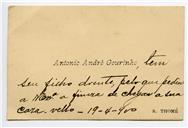 Antonio André Gourinho, tem
seu filho doente, pelo que pedia
a Mcê. a fineza de chegar a sua
casa. velho - 19-4-900
R. THOMÉ